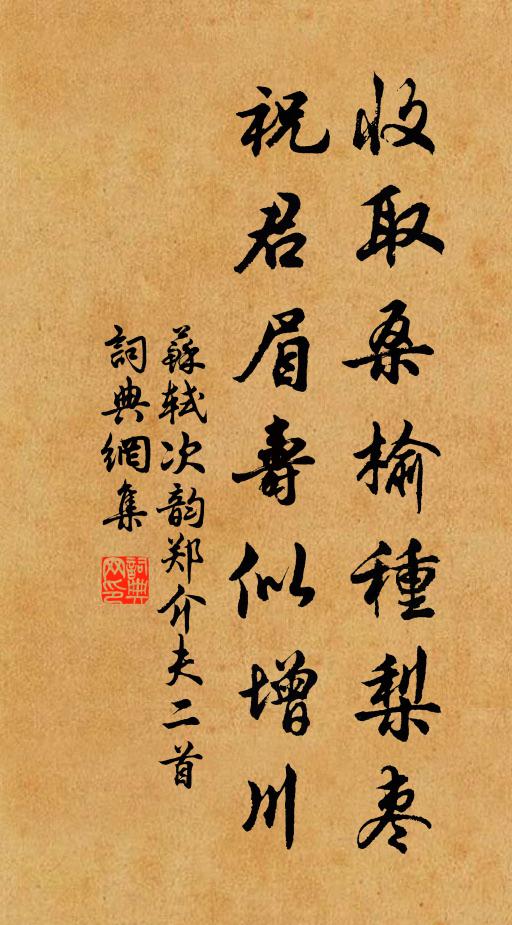 收取桑榆種梨枣
祝君眉壽似增川
蘇轼次韵郑介夫二首
詞典網集
詞典
网印